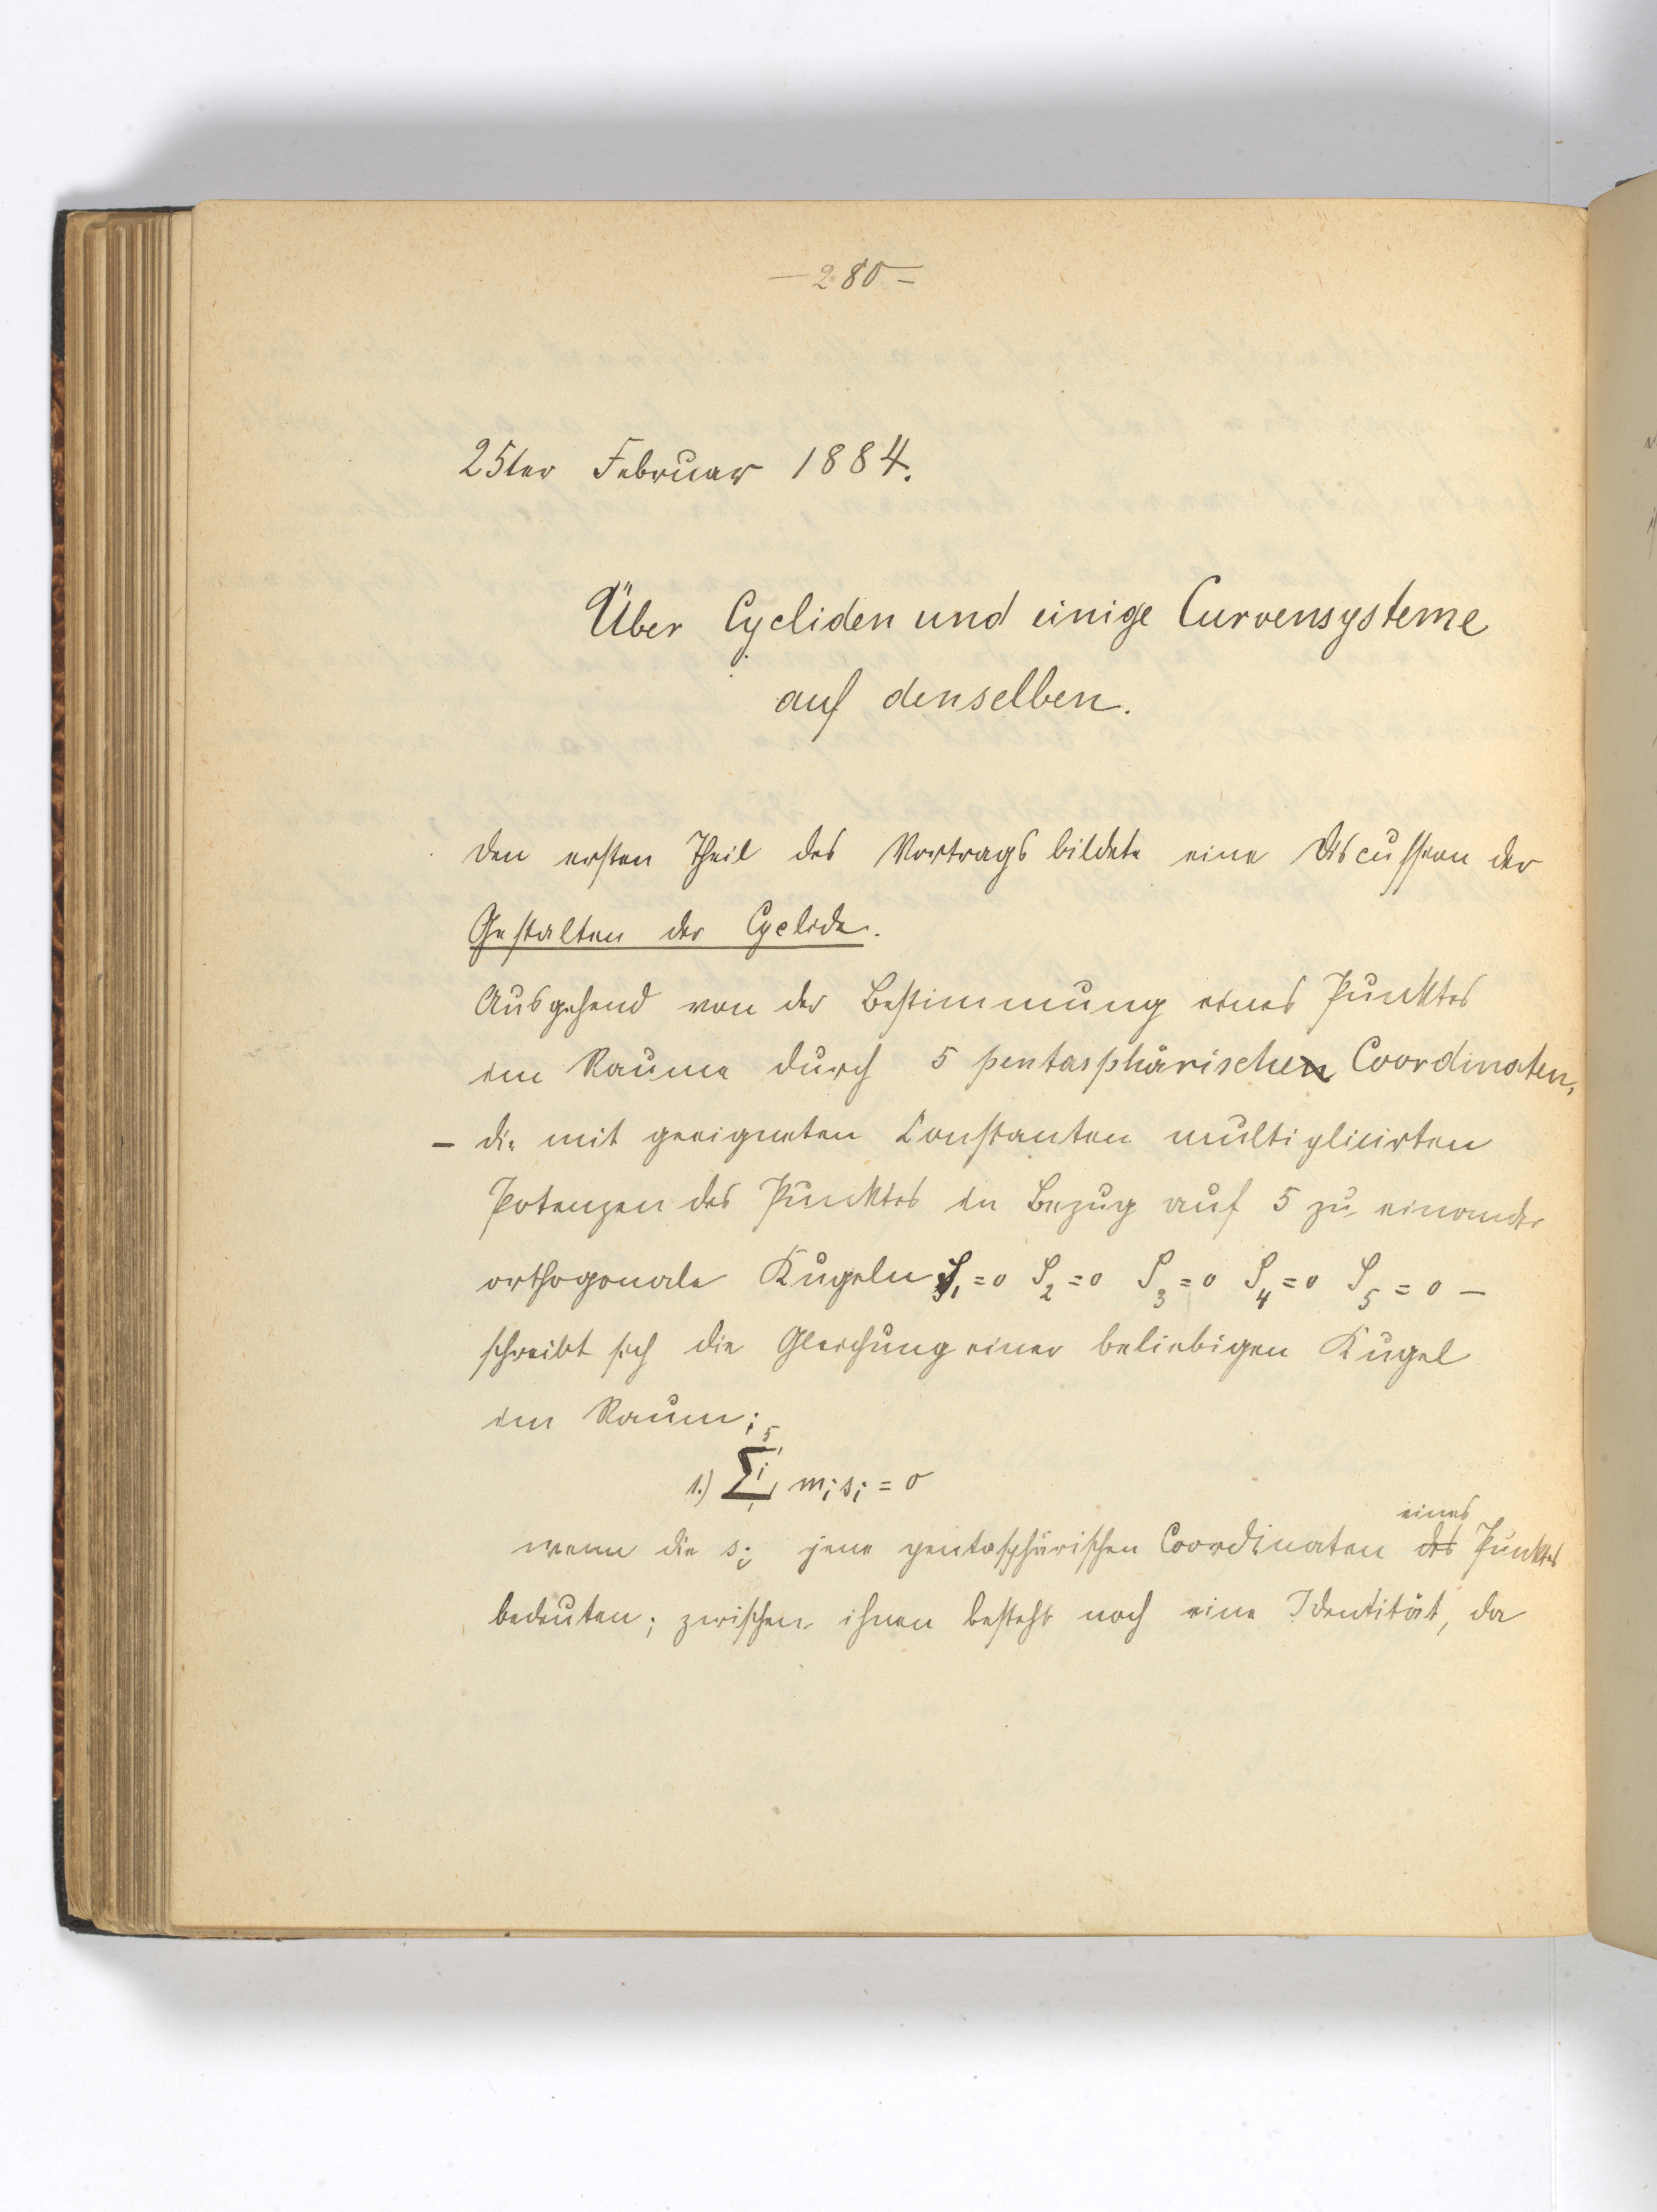 — 280 —
25ter Februar 1884.
Über Cycliden und einige Curvensysteme
auf denselben.
Den ersten Theil des Vortrags bildete eine Discussion der
Gestalten der Cyclide.
Ausgehend von der Bestimmung eines Punktes
im Raume durch 5 pentasphärischen Coordinaten,
– die mit geeigneten Constanten multiplicirten
Potenzen des Punktes in Bezug auf 5 zu einander
orthogonale Kugeln S₁=0 S₂=0 S₃=0 S₄=0 S₅=0 –
schreibt sich die Gleichung einer beliebigen Kugel
im Raum;
1.) ⁵∑ᵢ₁ mᵢsᵢ = 0
eines
wenn die sᵢ jene pentasphärischen Coordinaten des Punktes
bedeuten; zwischen ihnen besteht noch eine Identität, da